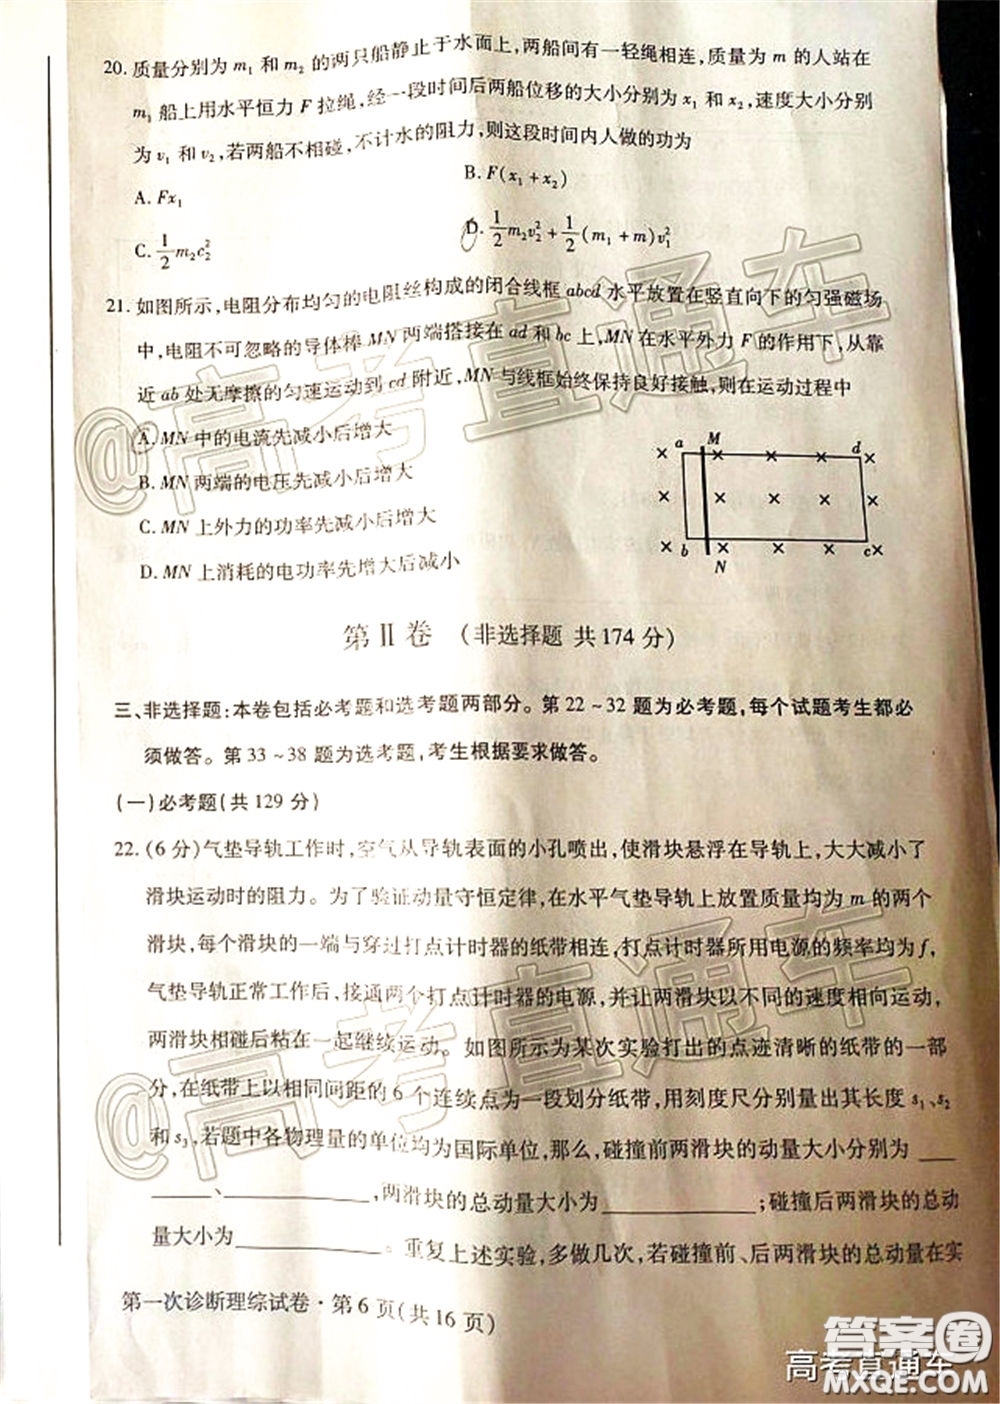 20. 质量分别为 m₁ 和 m₂ 的两只船静止于水面上,两船间有一轻绳相连,质量为 m 的人站在
m₁ 船上用水平恒力 F 拉绳,经一段时间后两船位移的大小分别为 x₁ 和 x₂,速度大小分别
为 v₁ 和 v₂,若两船不相碰,不计水的阻力,则这段时间内人做的功为
A. Fx₁
B. F(x₁+x₂)
C. 1/2 m₂c₂²
D. 1/2 m₂v₂² + 1/2 (m₁+m)v₁²
21. 如图所示,电阻分布均匀的电阻丝构成的闭合线框 abcd 水平放置在竖直向下的匀强磁场
中,电阻不可忽略的导体棒 MN 两端搭接在 ad 和 bc 上,MN 在水平外力 F 的作用下,从靠
近 ab 处无摩擦的匀速运动到 cd 附近,MN 与线框始终保持良好接触,则在运动过程中
A. MN 中的电流先减小后增大
B. MN 两端的电压先减小后增大
C. MN 上外力的功率先减小后增大
D. MN 上消耗的电功率先增大后减小
a M d
b N c
第Ⅱ卷 (非选择题 共174分)
三、非选择题:本卷包括必考题和选考题两部分。第22~32题为必考题,每个试题考生都必
须做答。第33~38题为选考题,考生根据要求做答。
(一)必考题(共129分)
22. (6分)气垫导轨工作时,空气从导轨表面的小孔喷出,使滑块悬浮在导轨上,大大减小了
滑块运动时的阻力。为了验证动量守恒定律,在水平气垫导轨上放置质量均为 m 的两个
滑块,每个滑块的一端与穿过打点计时器的纸带相连,打点计时器所用电源的频率均为 f,
气垫导轨正常工作后,接通两个打点计时器的电源,并让两滑块以不同的速度相向运动,
两滑块相碰后粘在一起继续运动。如图所示为某次实验打出的点迹清晰的纸带的一部
分,在纸带上以相同间距的6个连续点为一段划分纸带,用刻度尺分别量出其长度 s₁、s₂
和 s₃,若题中各物理量的单位均为国际单位,那么,碰撞前两滑块的动量大小分别为 ___
______、____________,两滑块的总动量大小为____________;碰撞后两滑块的总动
量大小为____________。重复上述实验,多做几次,若碰撞前、后两滑块的总动量在实
第一次诊断理综试卷·第6页(共16页)
@高考直通车
@高考直通车
高考直通车
答案圈
MXQE.COM